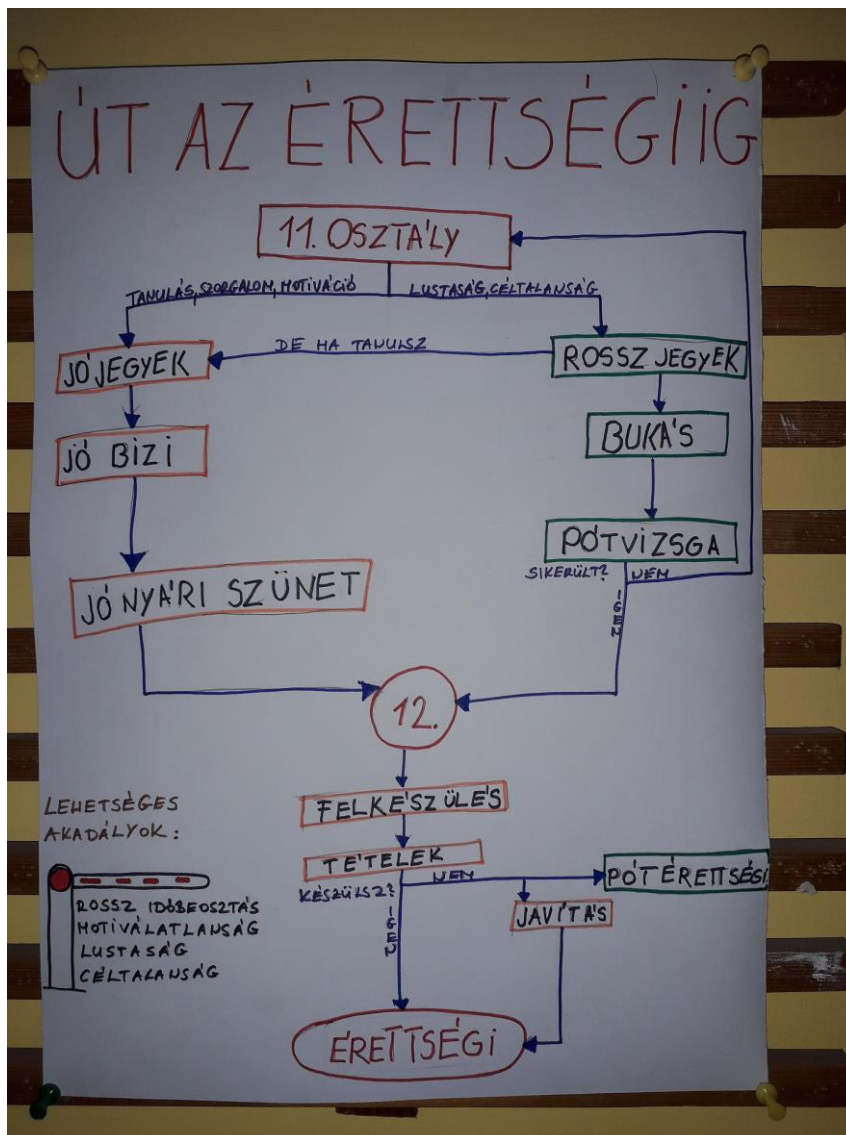 ÚT AZ ÉRETTSÉGIIG
11. OSZTÁLY
TANULÁS, SZORGALOM, MOTIVÁCIÓ
LUSTASÁG, CÉLTALANSÁG
JÓ JEGYEK
DE HA TANULSZ
ROSSZ JEGYEK
JÓ BIZI
BUKÁS
PÓTVIZSGA
SIKERÜLT?
NEM
IGEN
JÓ NYÁRI SZÜNET
12.
FELKÉSZÜLÉS
TÉTELEK
KÉSZÜLSZ?
NEM
IGEN
PÓTÉRETTSÉGI
JAVÍTÁS
ÉRETTSÉGI
LEHETSÉGES
AKADÁLYOK:
ROSSZ IDŐBEOSZTÁS
MOTIVÁLATLANSÁG
LUSTASÁG
CÉLTALANSÁG